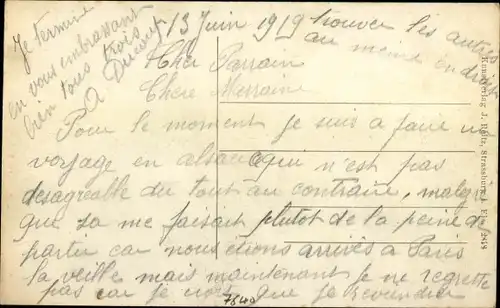 13 Juin 1919
trouver les autres
au meme endroit
Je termine
en vous embrassant
bien tous trois
A Ducourt
Cher Parrain
Chere Marraine
Pour le moment je suis a faire un
voyage en alsace qui n'est pas
desagreable du tout au contraire, malgre
que sa me faisait plutot de la peine de
partir car nous etions arrivés a Paris
la veille mais maintenant je ne regrette
pas car je crois que je reviendrai
7640
Kunstverlag J. Strassburg i. Els. 2618